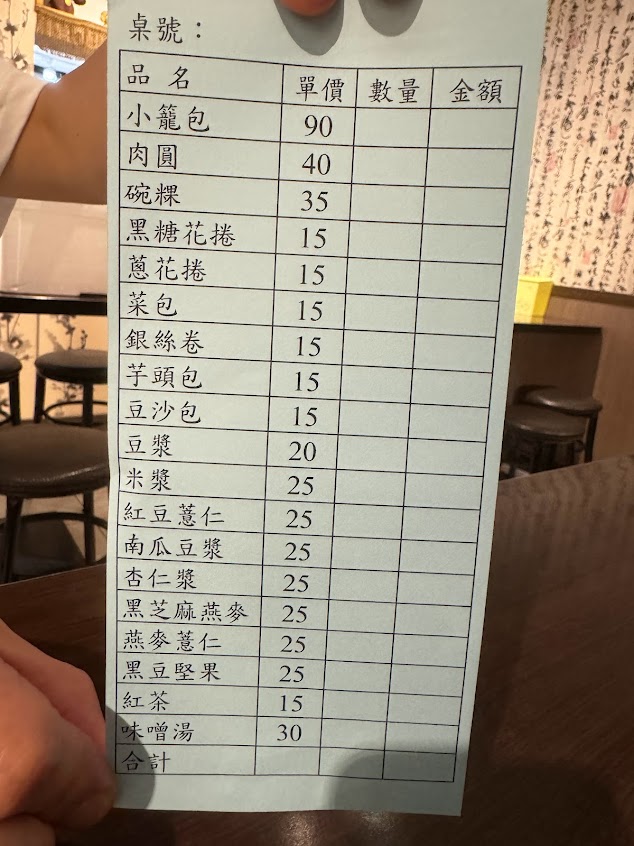 桌號：
品名 單價 數量 金額
小籠包 90
肉圓 40
碗粿 35
黑糖花捲 15
蔥花捲 15
菜包 15
銀絲卷 15
芋頭包 15
豆沙包 15
豆漿 20
米漿 25
紅豆薏仁 25
南瓜豆漿 25
杏仁漿 25
黑芝麻燕麥 25
燕麥薏仁 25
黑豆堅果 25
紅茶 15
味噌湯 30
合計